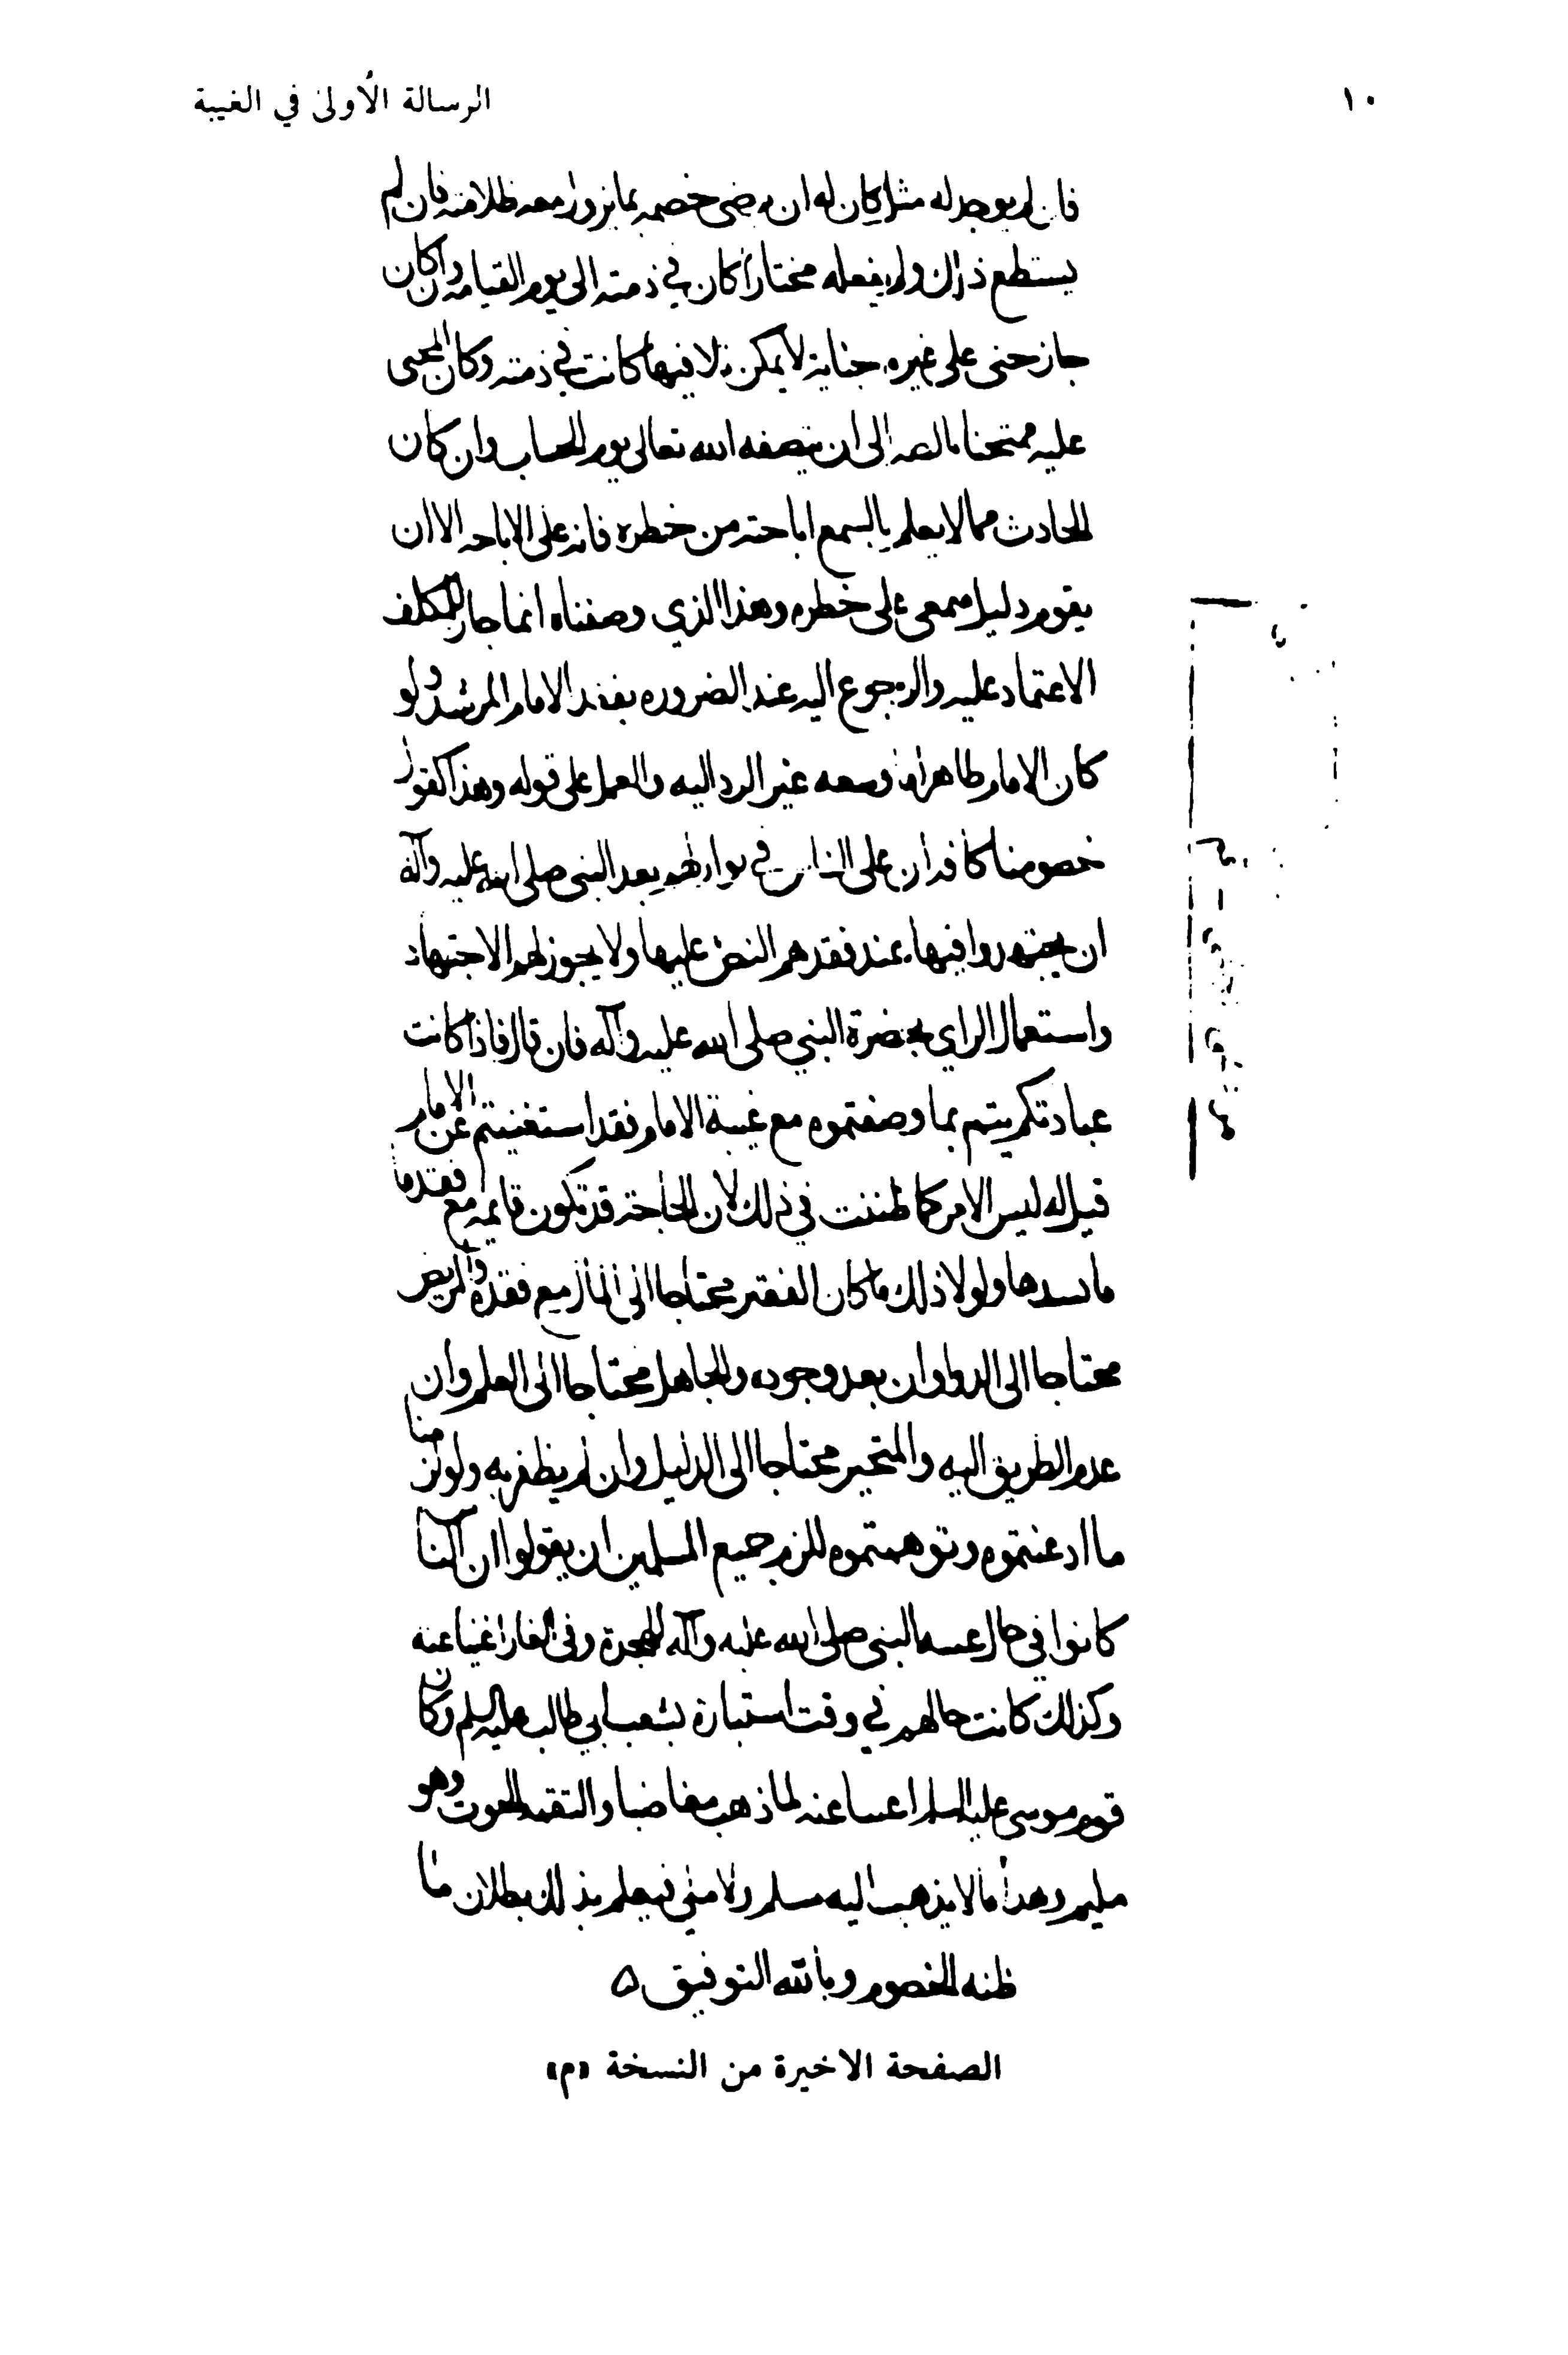 ١٠
الرسالة الأولى في الغيبة
فان لم يوجد له مثل كان له ان يرضى خصمه بما يزول معه ظلامته فان لم
يستطع ذلك ولم يفعله مختارا كان في ذمته الى يوم القيامه وان كان
جان جنى على غيره جناية لا يمكن تلافيها كانت في ذمته وكان المجنى
عليه ممتحنا بالصبر الى ان ينصفه الله تعالى يوم الحساب وان كان
الحادث مما لا يعلم بالسمع اباحته من خطره فانه على الاباحه الا ان
يقوم دليل سمعى على خطره وهذا الذي وصفناه انما جاز للمكلف
الاعتماد عليه والرجوع اليه عند الضروره بفقد الامام المرشد ولو
كان الامام ظاهرا ما وسعه غير الرد اليه والعمل على قوله وهذا كقول
خصومنا كافة ان على الناس في نوازلهم بعد النبي صلى الله عليه وآله
ان يجتهدوا فيها عند فقدهم النص عليها ولا يجوز لهم الاجتهاد
واستعمال الراي بحضرة النبي صلى الله عليه وآله فان قال فاذا كانت
عبادتكم يتم بما وصفتموه مع غيبة الامام فقد استغنيتم عن الامام
قيل له ليس الامر كما ظننت في ذلك لان الحاجة قد تكون قايمه مع فقد ما
ما يسدها ولولا ذلك ما كان الفقير محتاجا الى المال مع فقده والمريض
محتاجا الى الدوا وان بعد وجوده والجاهل محتاجا الى العلم وان
عدم الطريق اليه والمتحير محتاجا الى الدليل وان لم يظفر به ولو لزمنا
ما ادعيتموه وتوهمتموه للزم جميع المسلمين ان يقولوا ان الناس
كانوا في حال غيبه النبي صلى الله عليه وآله للهجرة وفي الغار اغنيا عنه
وكذلك كانت حالهم في وقت استتاره بشعب ابي طالب عليه السلم وكان
قوم موسى عليه السلم اغنيا عنه لما ذهب مغاضبا والتقمه الحوت وهو
مليم وهذا ما لا يذهب اليه مسلم ولا ملي فيعلم بذلك بطلان ما
ظنه الخصوم وبالله التوفيق ۵
الصفحة الاخيرة من النسخة «م»